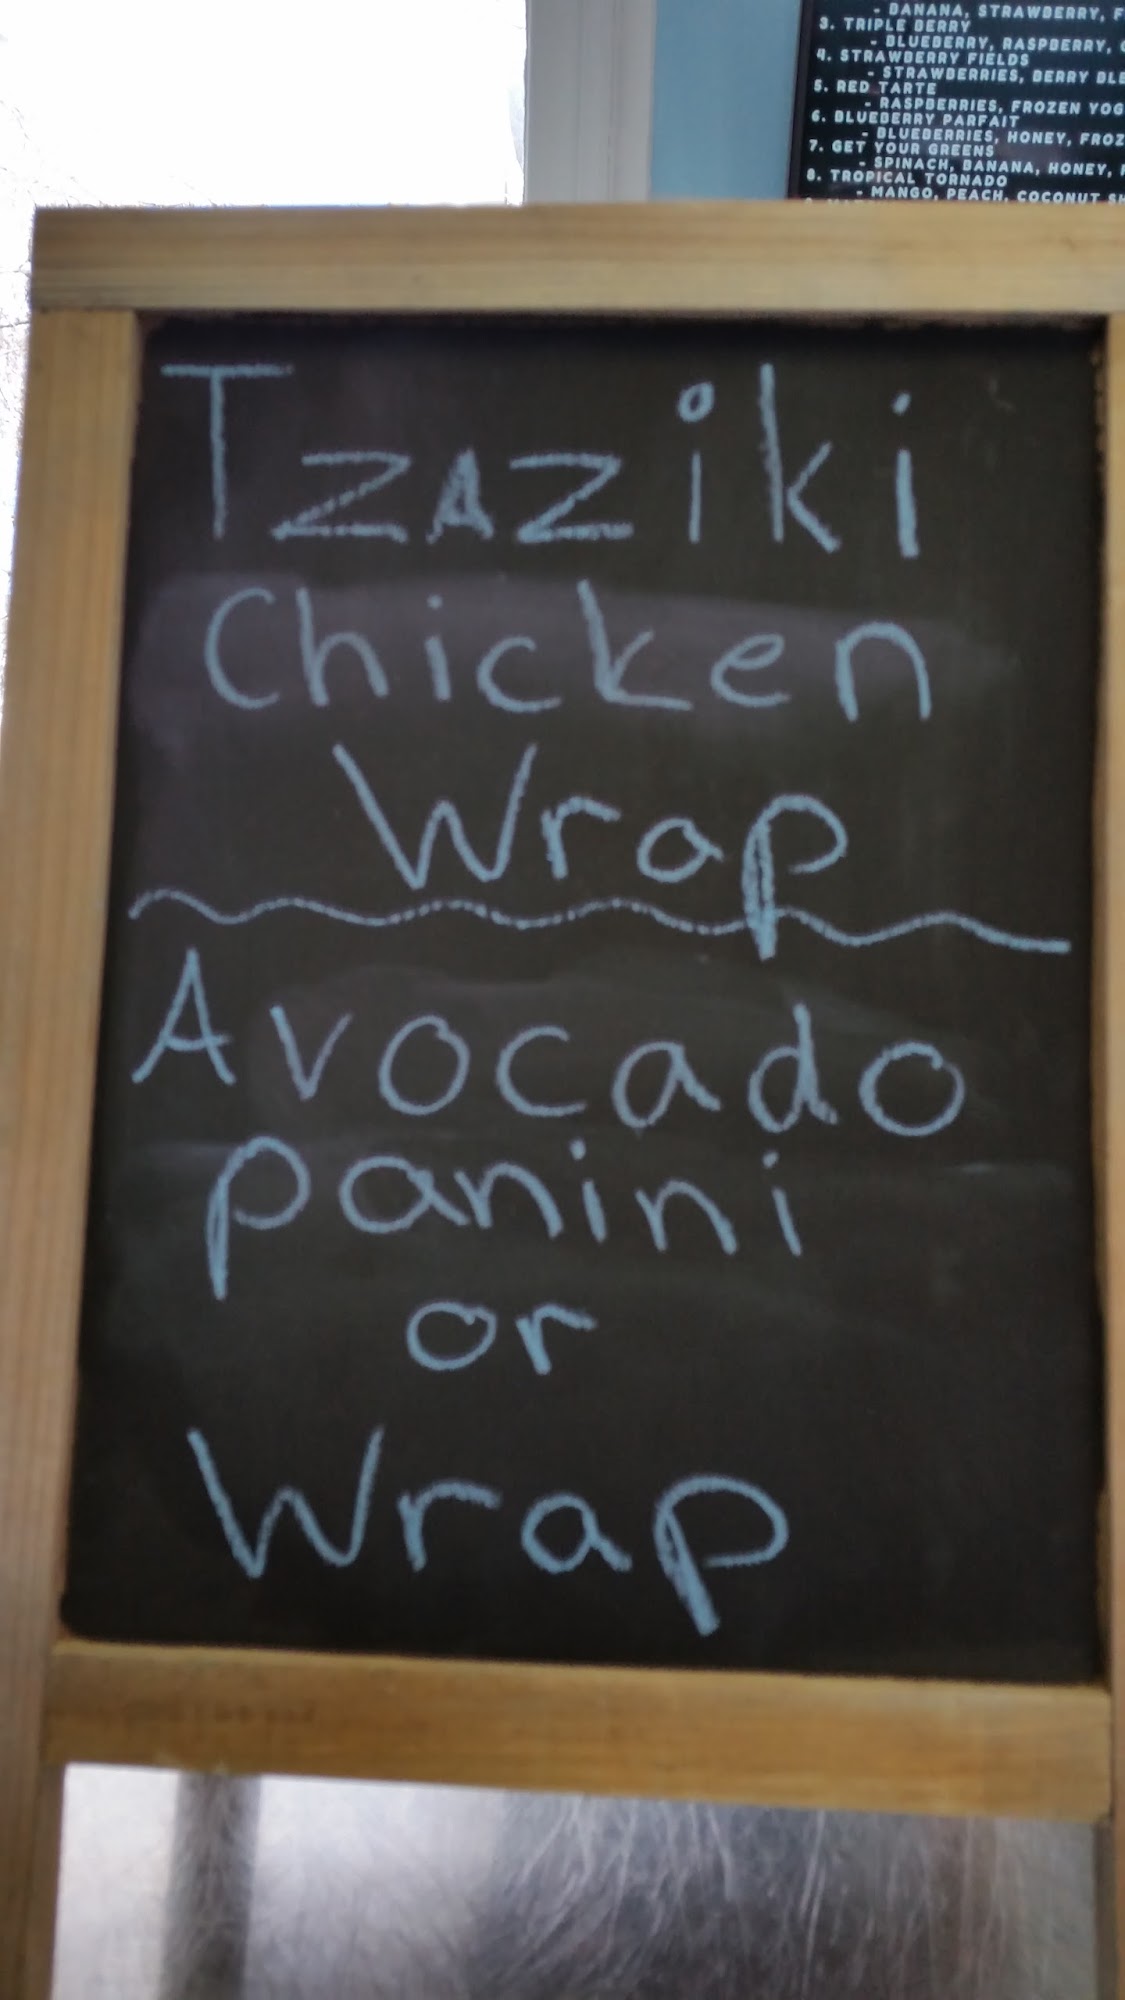 - BANANA, STRAWBERRY,
3. TRIPLE BERRY
- BLUEBERRY, RASPBERRY,
4. STRAWBERRY FIELDS
- STRAWBERRIES, BERRY
5. RED TARTE
- RASPBERRIES, FROZEN
6. BLUEBERRY PARFAIT
- BLUEBERRIES, HONEY,
7. GET YOUR GREENS
- SPINACH, BANANA, HONEY,
8. TROPICAL TORNADO
- MANGO, PEACH, COCONUT
Tzaziki
Chicken
Wrap
Avocado
panini
or
Wrap